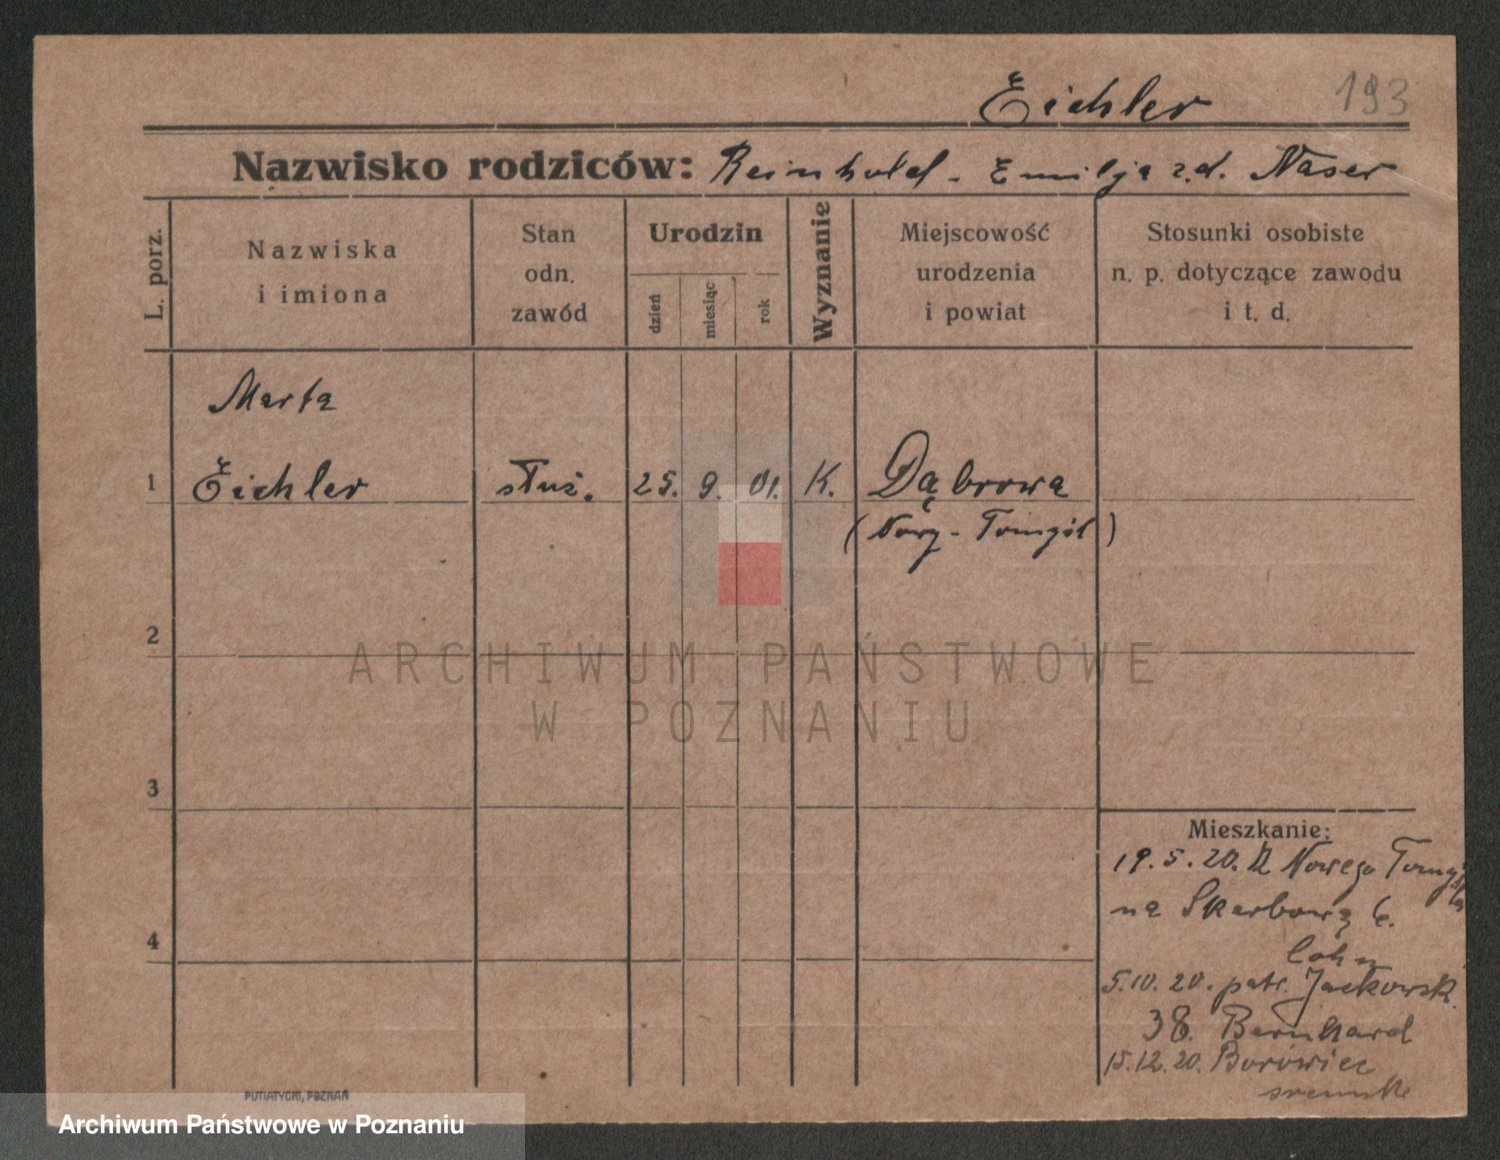 Eichler 193
Nazwisko rodziców: Reinhold - Emilja z.d. Naser
L. porz.
Nazwiska
i imiona
Stan
odn.
zawód
Urodzin
dzień
miesiąc
rok
Wyznanie
Miejscowość
urodzenia
i powiat
Stosunki osobiste
n. p. dotyczące zawodu
i t. d.
Marta
1 Eichler służ. 25. 9. 01. K. Dąbrowa
(Nowy-Tomyśl)
2
ARCHIWUM PAŃSTWOWE
W POZNANIU
3
Mieszkanie:
19.5.20. Z Nowego Tomyśla
na Skarbową 6.
4
Cohn
5.10.20. patr. Jackowsk.
38. Bernhard
15.12.20. Borówiec
PUTIATYCKI, POZNAŃ
Archiwum Państwowe w Poznaniu